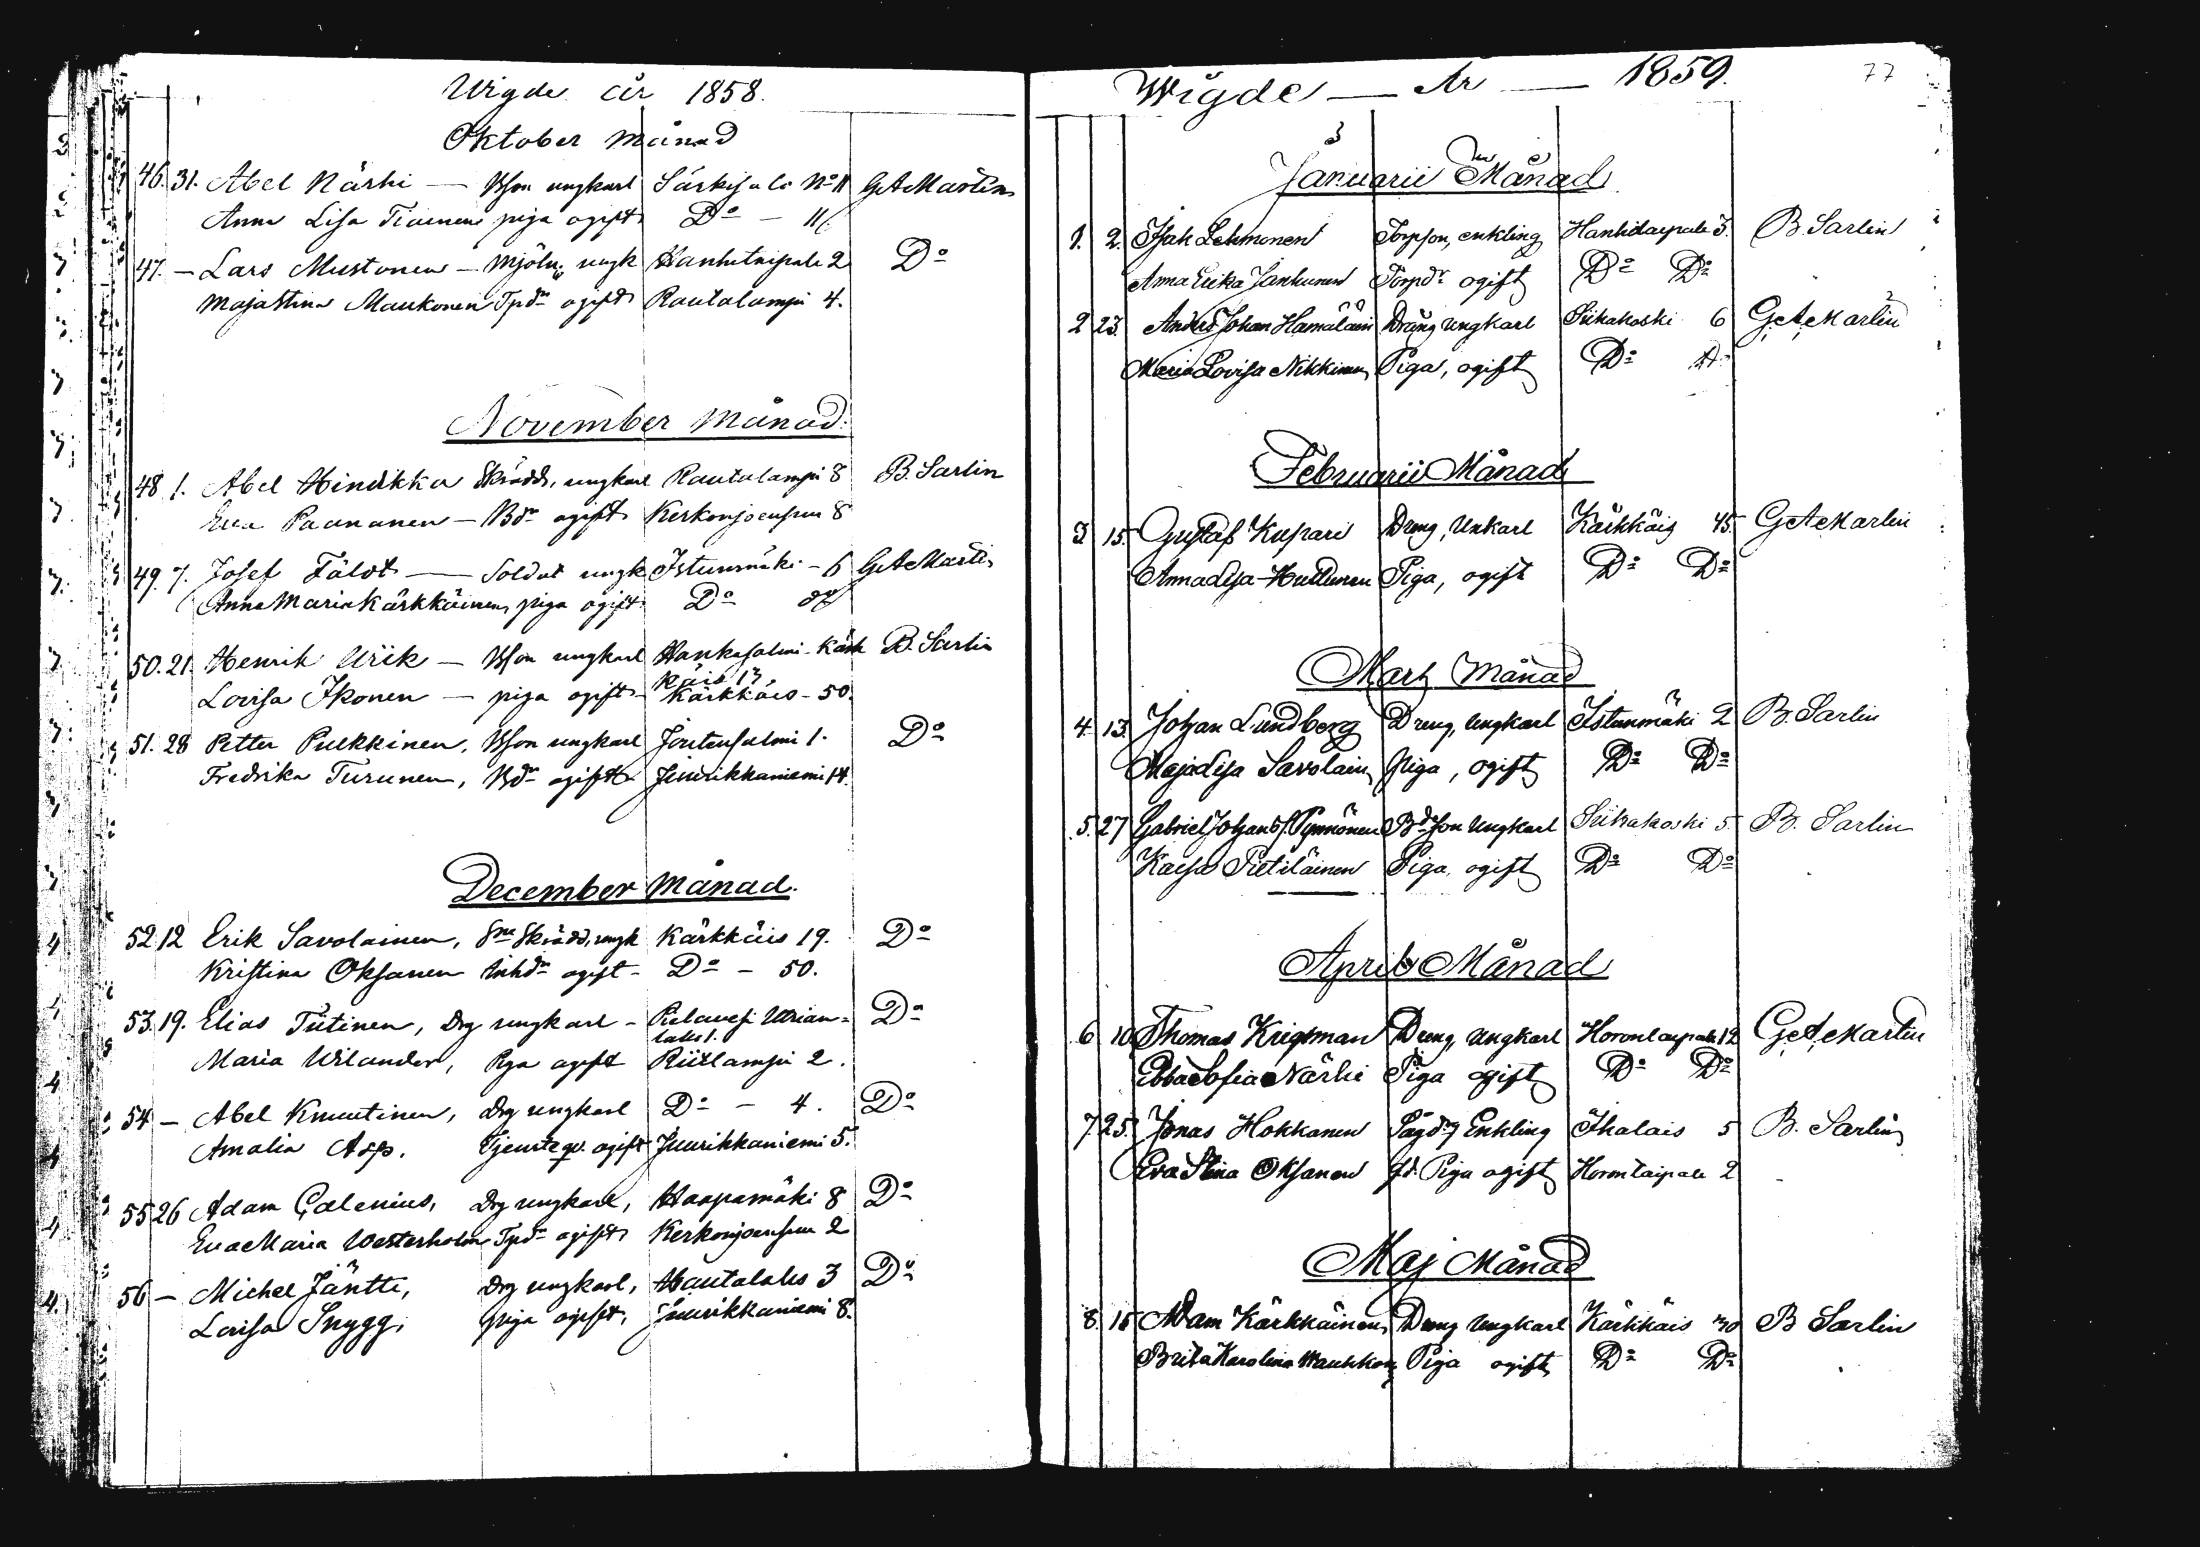 Wigde år 1858.
Oktober månad
46. 31. Abel Närhi — Bson ungkarl Särkisalo No 11 GAMartin
Anna Lisa Tiainen piga ogift Do — 11
47. — Lars Mustonen — Mjöln. ungk Hanhitaipale 2 Do
Maja Stina Maukonen Tpdr ogift Rautalampi 4.
November månad.
48 1. Abel Hindikka Skrädd, ungkarl Rautalampi 8 B. Sarlin
Eva Paananen — Bdr ogift Kerkonjoensuu 8
49. 7. Josef Fäldt — Soldat ungk Istunmäki — 6 GAMartin
Anna Maria Kärkkäinen, piga ogift Do
50. 21. Henrik Urik — Bson ungkarl Hankasalmi Kärk B. Sarlin
käis 13
Lovisa Ikonen — piga ogift — Kärkkäis — 50.
51. 28 Petter Pulkkinen, Bson ungkarl Joutensalmi 1. Do
Fredrika Turunen, Bdr ogift Juurikkaniemi 14.
December månad.
52 12 Erik Savolainen, Skrädd, ungk Kärkkäis 19. Do
Kristina Oksanen Inhdr ogift — Do — 50.
53. 19. Elias Tiitinen, Drg ungkarl — Pielavesi Uurian= Do
laks 1.
Maria Wilander, Pga ogift Riitlampi 2.
54 — Abel Knuutinen, drg ungkarl Do — 4. Do
Amalia Asp. Tjensteqv. ogift Juurikkaniemi 5.
55 26 Adam Calenius, Drg ungkarl, Haapamäki 8 Do
Eva Maria Westerholm Tpdr ogift Kerkonjoensuu 2
56 — Michel Jäntti, Drg ungkarl, Hautalaks 3 Do
Lovisa Snygg, piga ogift, Juurikkaniemi 8.
Wigde — År — 1859. 77
Januarii Månad
1. 2. Isak Lehmonen Torpson, enkling Hanhitaipale 3. B. Sarlin
Anna Erika Jankunen Torpdr ogift Do Do
2 23. Anders Johan Hämäläin Dräng Ungkarl Siikakoski 6 GAMartin
Maria Lovisa Nikkinen Piga, ogift Do Do
Februarii Månad
3 15. Gustaf Kupari Dreng, Unkarl Kärkkäis 45. GAMartin
Anna Lisa Huttunen Piga, ogift Do Do
Marts Månad
4. 13. Johan Lundberg Dreng, Ungkarl Istunmäki 2 B. Sarlin
Maja Lisa Savolain Piga, ogift Do Do
5. 27 Gabriel Johans s. Pynnönen Bdeson Ungkarl Siikakoski 5. B. Sarlin
Kaisa Pietiläinen Piga ogift Do Do
April Månad
6 10. Thomas Krigsman Dreng, Ungkarl Horontaipale 12 GAMartin
Ebba Sofia Närhi Piga ogift Do Do
7. 25. Jonas Hokkanen Enkling Ihalais 5 B. Sarlin
Eva Stina Oksanen fd. Piga ogift Horontaipale 2
Maj Månad
8. 15 Adam Kärkkäinen, Dreng Ungkarl Kärkkäis B Sarlin
Brita Karolina Piga ogift Do Do